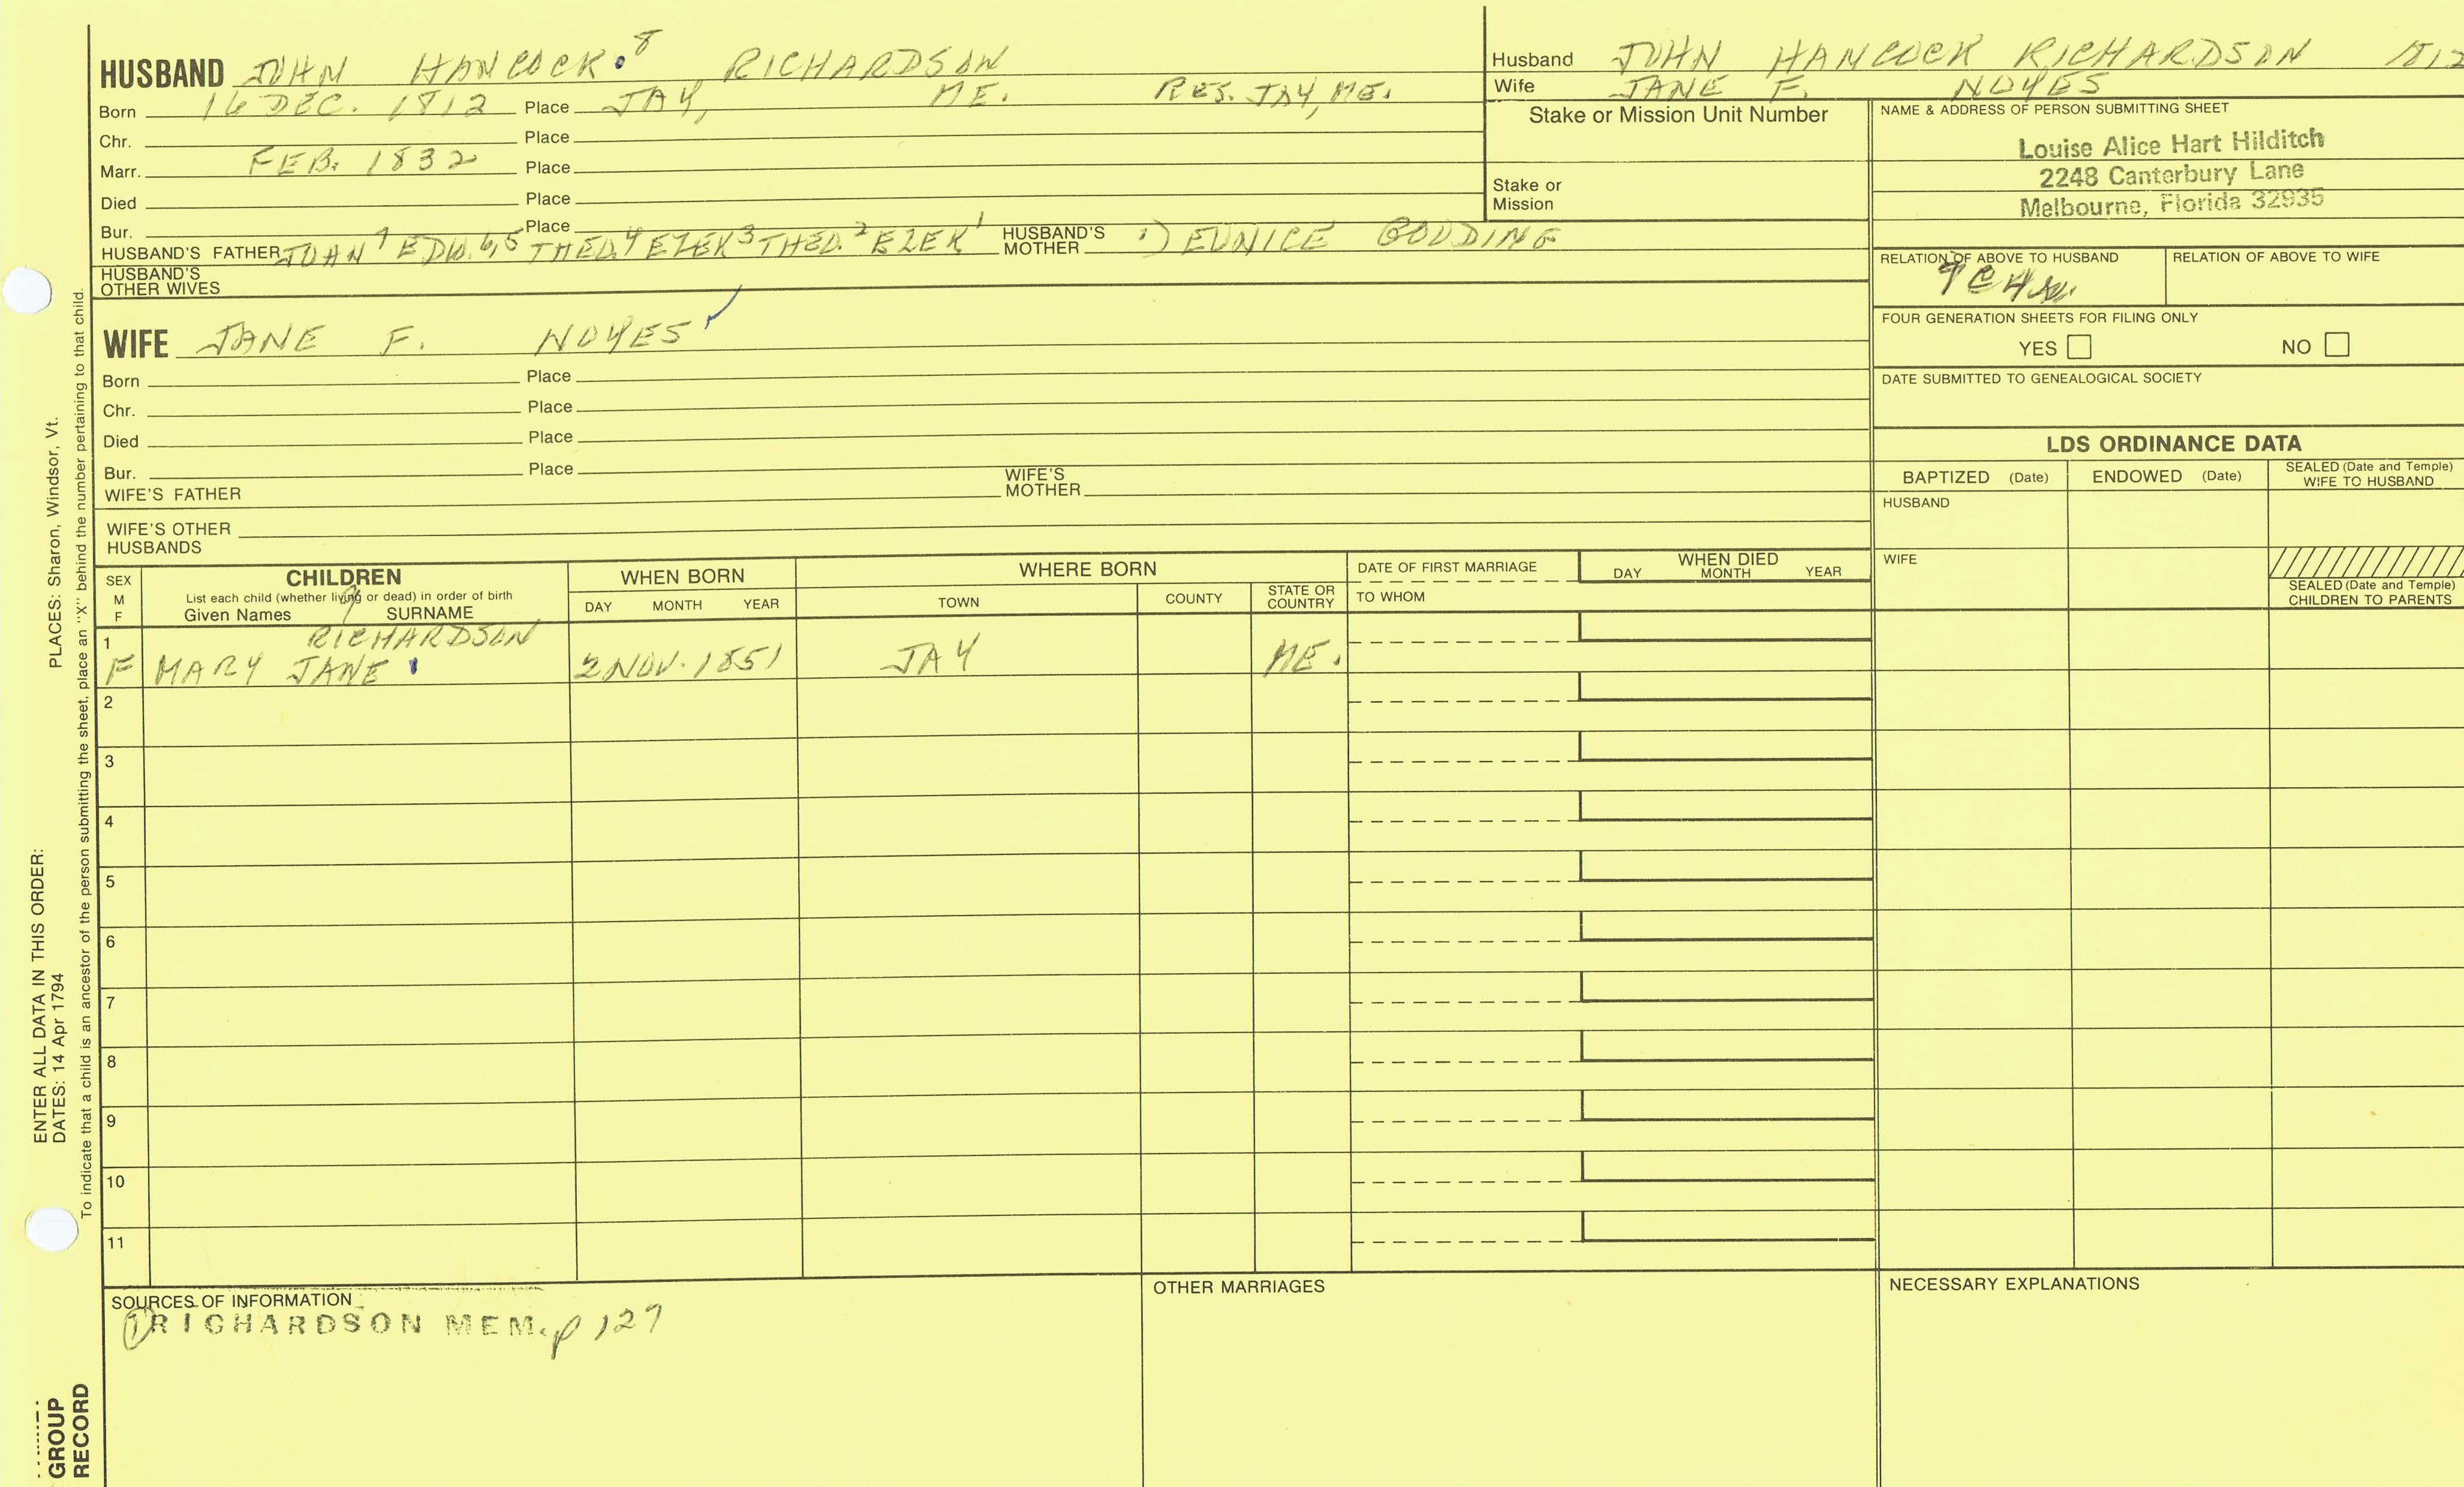 HUSBAND JOHN HANCOCK.8 RICHARDSON
Born 16 DEC. 1812 Place JAY, ME. RES. JAY, ME.
Chr. Place
Marr. FEB. 1832 Place
Died Place
Bur. Place
HUSBAND'S FATHER JOHN7 EDW.6,5 THEO.4 EZEK3 THEO.2 EZEK1 HUSBAND'S MOTHER 1) EUNICE GODDING
HUSBAND'S OTHER WIVES
Husband JOHN HANCOCK RICHARDSON 1812
Wife JANE F. NOYES
Stake or Mission Unit Number
Stake or Mission
NAME & ADDRESS OF PERSON SUBMITTING SHEET
Louise Alice Hart Hilditch
2248 Canterbury Lane
Melbourne, Florida 32935
RELATION OF ABOVE TO HUSBAND RELATION OF ABOVE TO WIFE
FOUR GENERATION SHEETS FOR FILING ONLY
YES NO
DATE SUBMITTED TO GENEALOGICAL SOCIETY
WIFE JANE F. NOYES
Born Place
Chr. Place
Died Place
Bur. Place
WIFE'S FATHER WIFE'S MOTHER
WIFE'S OTHER HUSBANDS
LDS ORDINANCE DATA
BAPTIZED (Date) ENDOWED (Date) SEALED (Date and Temple) WIFE TO HUSBAND
HUSBAND
WIFE
SEALED (Date and Temple) CHILDREN TO PARENTS
SEX M F
CHILDREN
List each child (whether living or dead) in order of birth
Given Names SURNAME
WHEN BORN
DAY MONTH YEAR
WHERE BORN
TOWN COUNTY STATE OR COUNTRY
DATE OF FIRST MARRIAGE
TO WHOM
WHEN DIED
DAY MONTH YEAR
1 RICHARDSON
F MARY JANE 2 NOV. 1851 JAY ME.
2
3
4
5
6
7
8
9
10
11
SOURCES OF INFORMATION
1 RICHARDSON MEM. p 127
OTHER MARRIAGES
NECESSARY EXPLANATIONS
ENTER ALL DATA IN THIS ORDER:
DATES: 14 Apr 1794 PLACES: Sharon, Windsor, Vt.
To indicate that a child is an ancestor of the person submitting the sheet, place an "X" behind the number pertaining to that child.
GROUP
RECORD